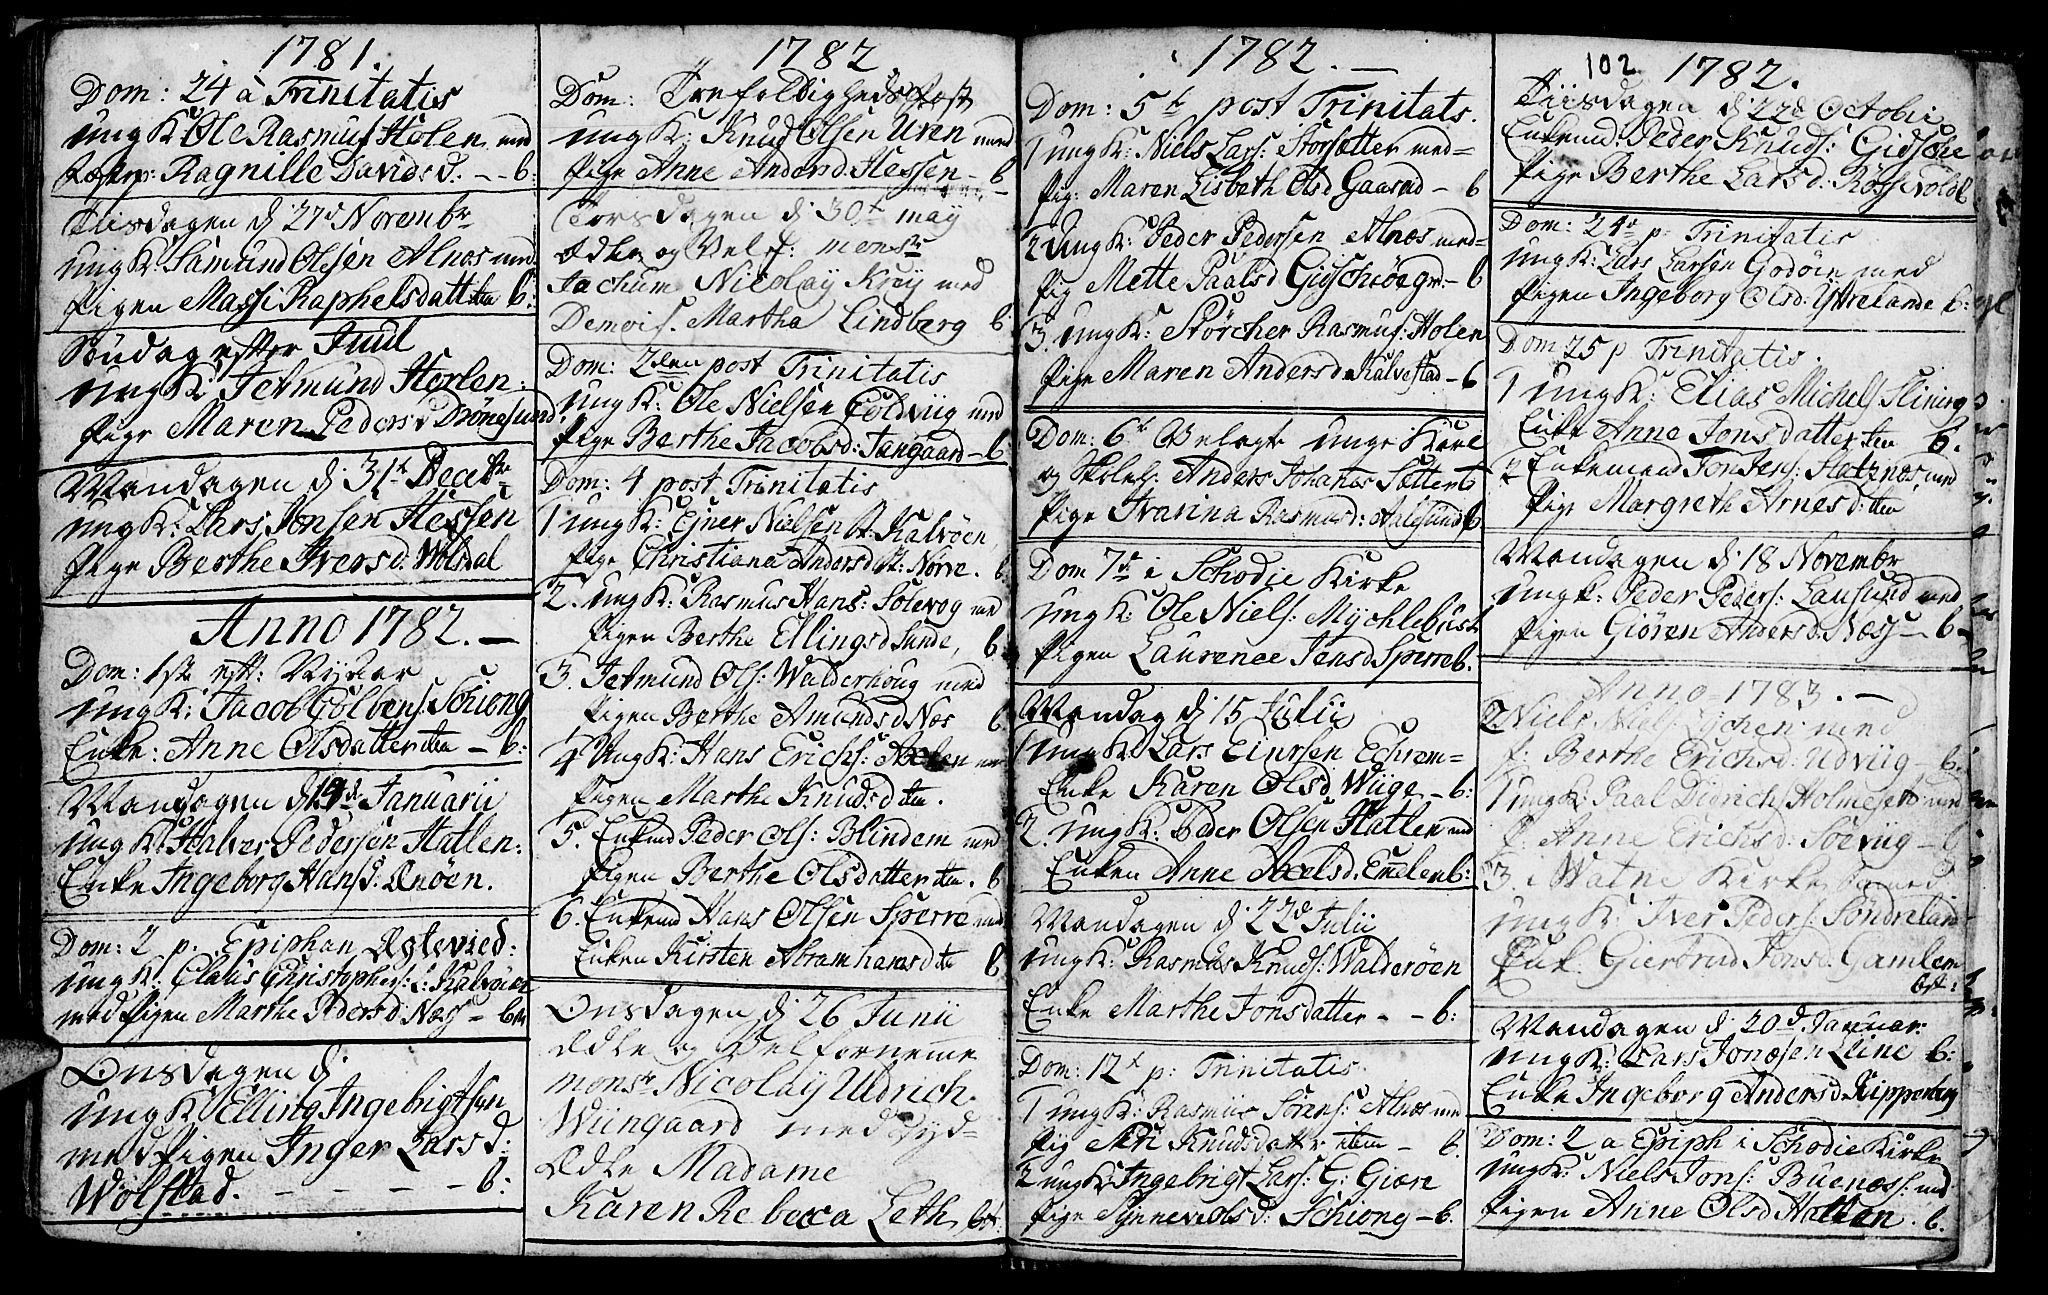 1781.
Dom: 24 à Trinitatis
ungK: Ole Rasmus: Holen med
Ragnille Davidsd: - - b:
Tiisdagen d: 27d Novembr
ungK: Samund Olsen Alnes med
Pigen Massi Raphelsdatt ibm b:
Søndag efter Juul
ungK: Jetmund Horlen:
Pige Maren Pedersd Brønesund:
Mandagen d: 31t Decbr
ungK: Lars Jonsen Hessen
Pige Berthe Iversd: Wolsdal
Anno 1782. —
Dom: 1ste eft: Nyaar
ungK: Jacob Colbens: Schiong
Enke: Anne Olsdatter ibm - b:
Mandagen d: 14de Januarii
ungK: Halver Pedersen Hatlen:
Enke Ingeborg Hansd: Ønøen.
Dom: 2 p. Epiphan Ægtevied:
ungK: Claus Christophers: Kalvøen
med Pigen Marthe Pedersd: Næss - b
Onsdagen d:
ungK Elling Ingebrigtsen
med Pigen Inger Larsd:
Wolstad. - - - - b:
1782
Dom: Trefoldigheds Fest
ungK: Knud Olsen Uren med
Pige Anne Andersd Hessen - b
Torsdagen d: 30t may
Ædle og Velf: monsr
Jachum Nicolay Kroy med
Demois. Martha Lindberg b:
Dom: 2den post Trinitatis
ungK: Ole Nielsen Coldviig med
Pige Berthe Jacobsd: Tangaard - b
Dom: 4 post Trinitatis
1 ungK: Ejner Nielsen Kalvøen,
Pige Christiana Andersd: Nørve. b
2. ungK: Rasmus Hans: Solevog med
Pigen Berthe Ellingsd Sunde, b
3. Jetmund Ols: Walderhoug med
Pigen Berthe Amundsd Næs b
4 UngK: Hans Erichs: med
Pigen Marthe Knudsd ibm.
5. Enkmd Peder Ols: Blindem med
Pigen Berthe Olsdatter ibm. b
6. Enkemd Hans Olsen Sperre med
Enken Kirsten Abramhamsd ib b
Onsdagen d: 26 Junii
Ædle og Velfornemme
monsr Nicolay Uldrich
Wiingaard med Dyd=
Ædle Madame
Karen Rebecca Leth, bt.
1782. —
Dom: 5te post Trinitats.
1 ungK: Niels Lars: Storsætter med=
Pig: Maren Lisbeth Olsd Gaarad - b
2 UngK: Peder Pedersen Alnæs med=
Pig Mette Paalsd Gidschøegrd - b
3. ungK: Storcher Rasmus: Holen
Pige Maren Andersd Kalvestad - b
Dom: 6te Velagte unge Karl
og Skolel. Anders Johans Sætter b
Pige Ivarina Rasmusd: Aalesund b
Dom 7de i Schodie Kirke
UngK: Ole Niels: Mychlebust
Pigen Laurence Jensd Sperre b.
Mandag d: 15 Julii
1 ungK Lars Einersen Echrem=
Enke Karen Olsd Wiige - b:
2. ungK: Peder Olsen Hatlen md
Enken Anne Axelsd: Emelen b:
Mandagen d: 22d Julii
ungK: Rasmus Knuds: Walderøen
Enke Marthe Jonsdatter - - b:
Dom: 12t p: Trinitatis.
1 ungK: Rasmus Sørens: Alnæs md
Pig Siri Knudsdatr ibm - b.
2 ungK: Ingebrigt Lars: G: Giære
Pige Synneve Olsd: Schiong - b.
102
1782.
Tiisdagen d: 22d Octobr
Enkemd: Peder Knuds: Gidsche
Pige Berthe Larsd: Røssevold b
Dom: 24d p. Trinitatis
ungK: Lars Larsen Godøen med
Pigen Ingeborg Olsd: Yttrelande b:
Dom 25 p Trinitatis.
1 ungK: Elias Michels Slining
Enke Anne Jonsdatter ibm b.
2 Enkemend Jon Jens: Hatznæs, med
Pige Margreth Arnesd: ibm
Mandagen d: 18 Novembr
ungk: Peder Peders: Lausund med
Pigen Giøren Andersd: Næss - b -
Anno 1783. —
2. Niels Niels: med
P: Berthe Erichsd: Udviig - b.
1 ungK: Paal Didrichs Holmeset med
P. Anne Erichsd: Soeviig - b
3. i Watne Kirke
ungK Iver Peders: Søndreland
Enk. Giertrud Jonsd: Gamlem
bt:
Mandagen d: 20d Januar:
ungK: Lars Jonæsen Line b:
Enke Ingeborg Andersd Kipperberg
Dom: 2 a Epiph i Schodie Kirke
ungK: Niels Jons: Buenæss: md
Pigen Anne Olsd Hatlen. b.